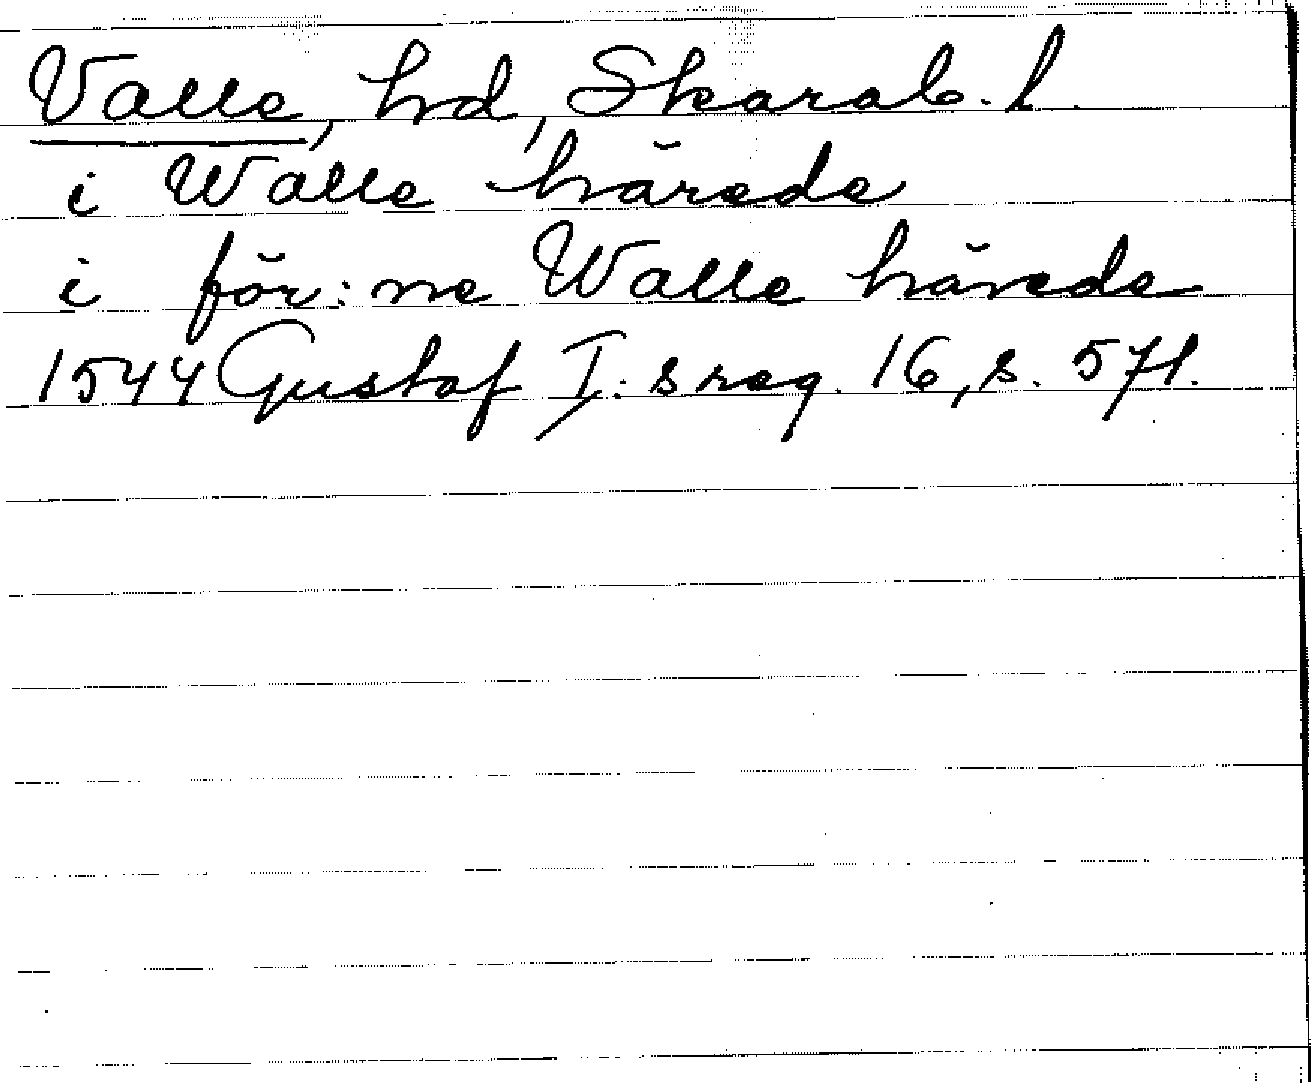 Valle, hd, Skarab. l.
i Walle härede
i för: ne Walle härede
1544 Gustaf I: s reg. 16, s. 571.